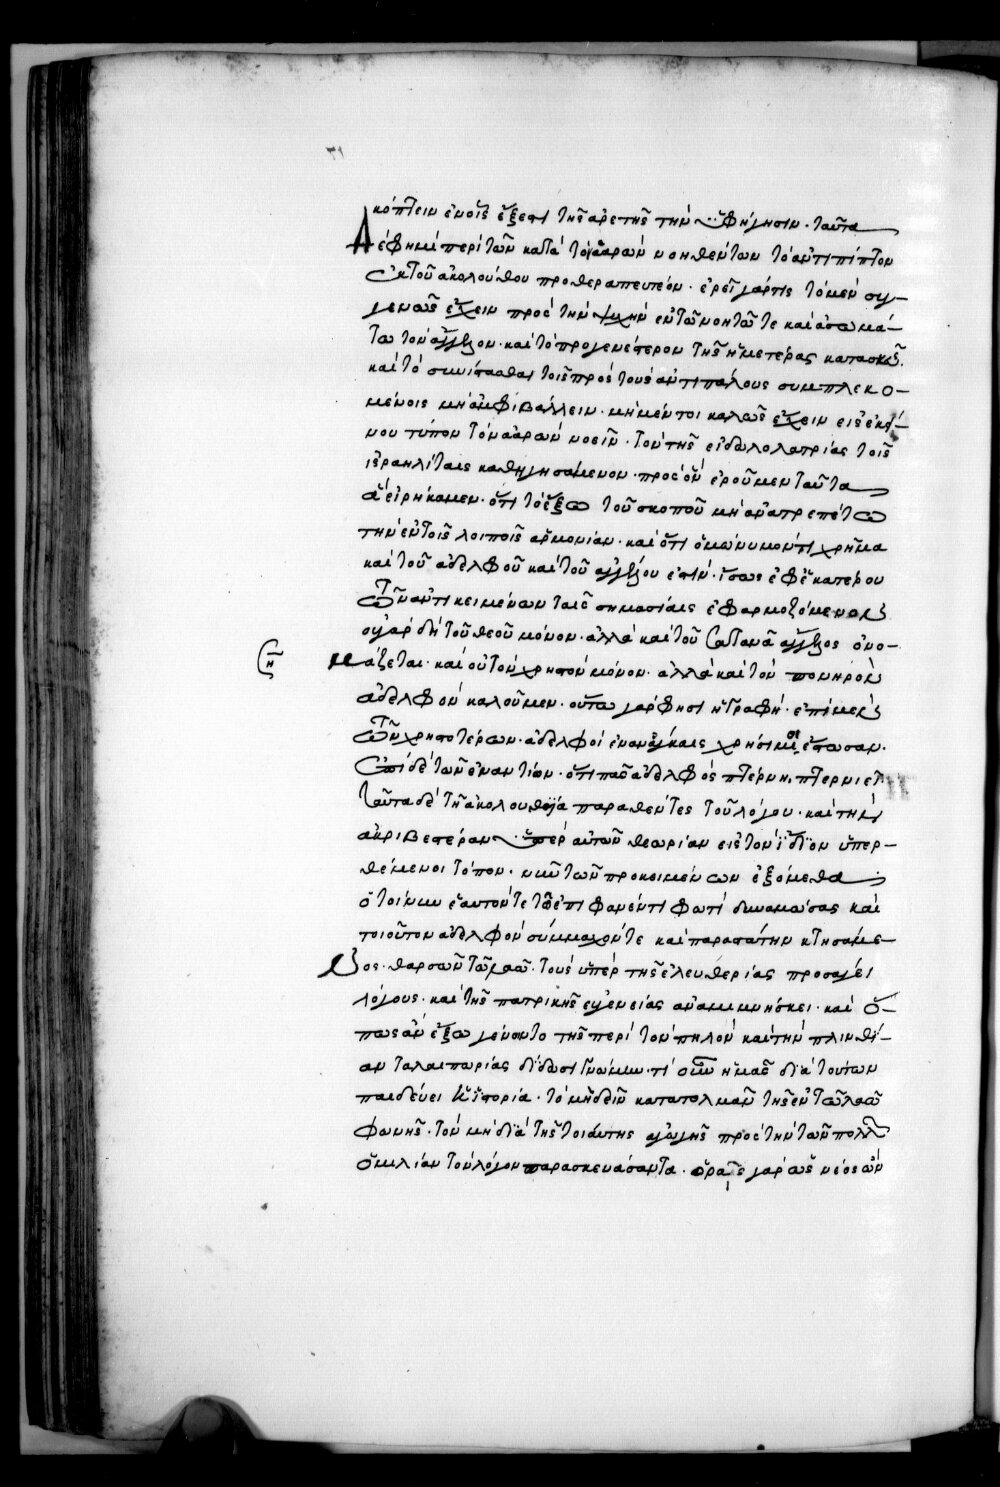 κόπτειν ἐν οἷς ἔξεστι τῆς ἀρετῆς τὴν ὑφήγησιν· ταῦτα
ἃ ἔφημεν περὶ τῶν κατὰ τὸν ἀαρὼν νοηθέντων τὸ ἀντιπίπτον
ἐκ τοῦ ἀκολούθου προθεραπευτέον· ἐρεῖ γάρ τις τὸ μὲν συγ-
γενῶς ἔχειν πρὸς τὴν ψυχὴν ἐν τῷ νοητῷ τε καὶ ἀσωμά-
τῳ τὸν ἄγγελον· καὶ τὸ προγενέστερον τῆς ἡμετέρας κατασκευῆς·
καὶ τὸ συνίστασθαι τοῖς πρὸς τοὺς ἀντιπάλους συμπλεκο-
μένοις μὴ ἀμφιβάλλειν· μὴ μέντοι καλῶς ἔχειν εἰς ἐκεί-
νου τύπον τὸν ἀαρὼν νοεῖν· τὸν τῆς εἰδωλολατρίας τοῖς
ἰσραηλίταις καθηγησάμενον· πρὸς ὃν ἐροῦμεν ταῦτα
ἃ εἰρήκαμεν· ὅτι τὸ ἔξω τοῦ σκοποῦ μὴ ἀνατρεπέτω
τὴν ἐν τοῖς λοιποῖς ἁρμονίαν· καὶ ὅτι ὁμώνυμόν τι χρῆμα
καὶ τοῦ ἀδελφοῦ καὶ τοῦ ἀγγέλου ἐστίν· ἴσως ἐφ' ἑκατέρου
τῶν ἀντικειμένων ταῖς σημασίαις ἐφαρμοζόμενον·
οὐ γὰρ δὴ τοῦ θεοῦ μόνον· ἀλλὰ καὶ τοῦ σατανᾶ ἄγγελος ὀνο-
μάζεται· καὶ οὐ τὸν χρηστὸν μόνον· ἀλλὰ καὶ τὸν πονηρὸν
ἀδελφὸν καλοῦμεν· οὕτω γάρ φησι ἡ γραφή· ἐπὶ μὲν
τῶν χρηστοτέρων· ἀδελφοὶ ἐν ἀνάγκαις χρήσιμοι ἔστωσαν·
ἐπὶ δὲ τῶν ἐναντίων· ὅτι πᾶς ἀδελφὸς πτέρνῃ πτερνιεῖ
ταῦτα δὲ τῇ ἀκολουθίᾳ παραθέντες τοῦ λόγου· καὶ τὴν
ἀκριβεστέραν ὑπὲρ αὐτῶν θεωρίαν εἰς τὸν ἴδιον ὑπερ-
θέμενοι τόπον· νῦν τῶν προκειμένων ἐξόμεθα
ὁ τοίνυν ἑαυτόν τε τῷ ἐπιφανέντι φωτὶ δυναμώσας καὶ
τοιοῦτον ἀδελφὸν σύμμαχόν τε καὶ παραστάτην κτησάμε-
νος· θαρσῶν τῷ λαῷ· τοὺς ὑπὲρ τῆς ἐλευθερίας προσάγει
λόγους· καὶ τῆς πατρικῆς εὐγενείας ἀναμιμνήσκει· καὶ ὅ-
πως ἂν ἔξω γένοιντο τῆς περὶ τὸν πηλὸν καὶ τὴν πλινθί-
αν ταλαιπωρίας δίδωσι γνώμην· τί οὖν ἡμᾶς διὰ τούτων
παιδεύει ἡ ἱστορία· τὸ μὴ δεῖν κατατολμᾶν τῆς ἐν τῷ λαῷ
φωνῆς· τὸν μὴ διὰ τῆς τοιαύτης ἀγωγῆς πρὸς τὴν τῶν πολλῶν
ὁμιλίαν τὸν λόγον παρασκευάσαντα· ὁρᾶτε γὰρ ὡς νέος ὢν